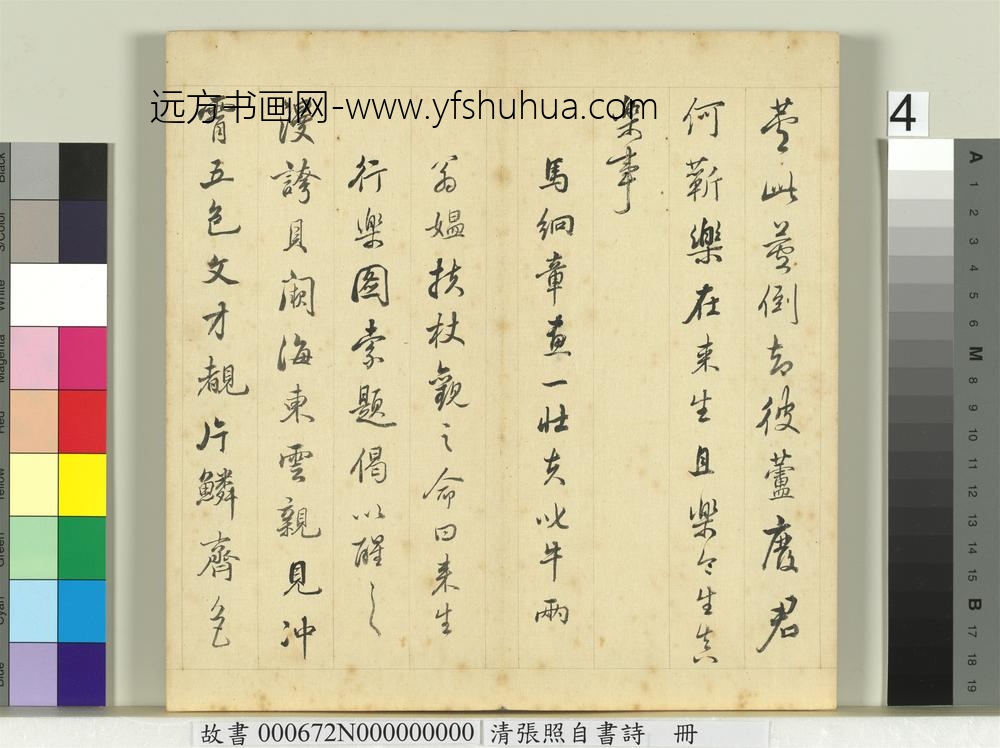 此蘆倒却彼蘆廢君
何蘄樂在来生且樂今生真
樂事
馬絅章畫一壯夫叱牛兩
翁媼扶杖觀之命曰来生
行樂图索題偈以醒之
謾誇貝闕海東雲親見冲
霄五色文才覩片鱗齊
远方书画网-www.yfshuhua.com
4
A
1
2
3
4
5
6
M
8
9
10
11
12
13
14
15
B
17
18
19
Black
3/Color
White
Magenta
Red
Yellow
Green
Cyan
Blue
故書 000672N000000000 清張照自書詩 冊